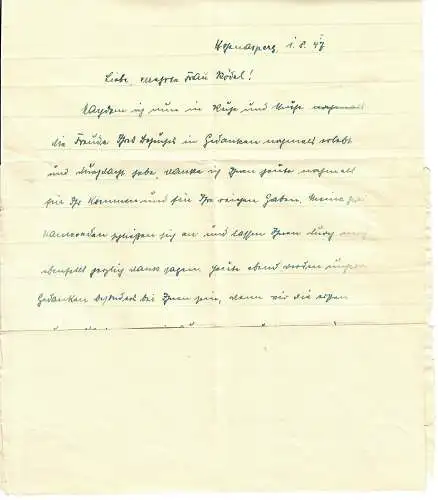 Hohenasperg, 1.8.47
Liebe, verehrte Frau Rödel!
Nachdem ich nun in Ruhe und Muße nochmals
die Freude Ihres Besuchs in Gedanken nochmals erlebt
und durchdacht habe, danke ich Ihnen heute nochmals
für Ihr Kommen und für Ihre reichen Gaben. Meine
Kameraden schließen sich an und lassen Ihnen durch mich
ebenfalls herzlich Dank sagen. Heute abend werden unsere
Gedanken besonders bei Ihnen sein, wenn wir die ersten